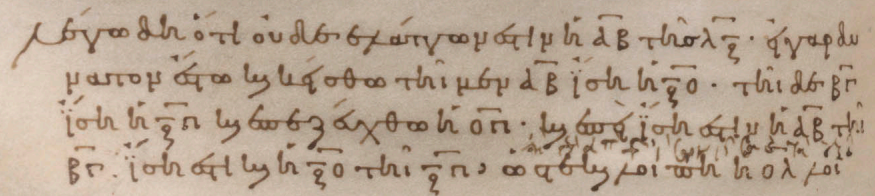 λέγω δὴ ὅτι οὐδὲ ἐλάττων ἐστὶν ἡ ΑΒ τῆς λξ · εἰ γὰρ δυ
νατὸν ἔστω καὶ κείσθω τῆι μὲν ΑΒ ἴση ἡ ξο · τῆι δὲ βγ
ἴση ἡ ξπ καὶ ἐπεζεύχθω ἡ οπ · καὶ ἐπεὶ ἴση ἐστὶν ἡ ΑΒ τῆι
βγ · ἴση ἐστὶ καὶ ἡ ξο τῆι ξπ · ὥστε καὶ λοιπὴ ἡ ολ λοι